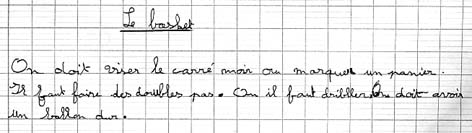 Le basket
On doit viser le carré noir ou marquer un panier.
Il faut faire des doubles pas. On il faut dribller On doit avoir
un ballon dur.